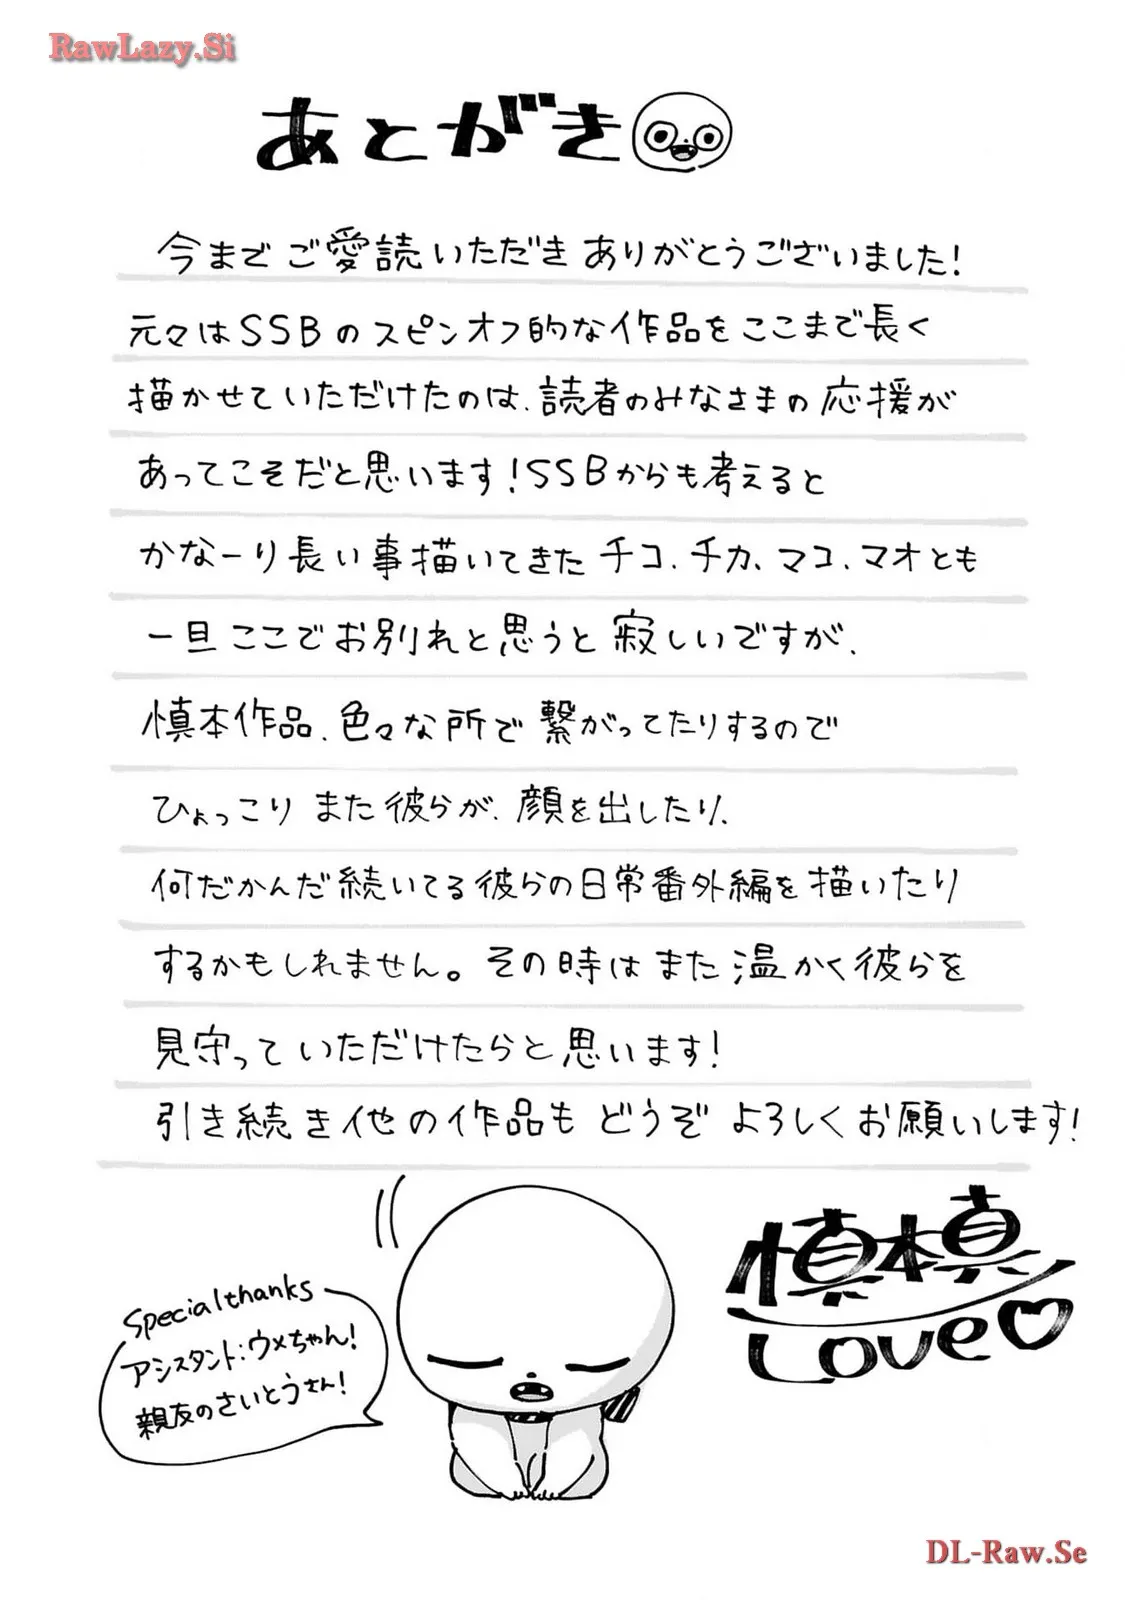 RawLazy.Si
あとがき
今までご愛読いただきありがとうございました!
元々はSSBのスピンオフ的な作品をここまで長く
描かせていただけたのは、読者のみなさまの応援が
あってこそだと思います!SSBからも考えると
かなーり長い事描いてきたチコ、チカ、マコ、マオとも
一旦ここでお別れと思うと寂しいですが、
慎本作品、色々な所で繋がってたりするので
ひょっこりまた彼らが、顔を出したり、
何だかんだ続いてる彼らの日常番外編を描いたり
するかもしれません。その時はまた温かく彼らを
見守っていただけたらと思います!
引き続き他の作品もどうぞよろしくお願いします!
Specialthanks
アシスタント:ウメちゃん!
親友のさいとうさん!
慎本真
LOVE♡
DL-Raw.Se